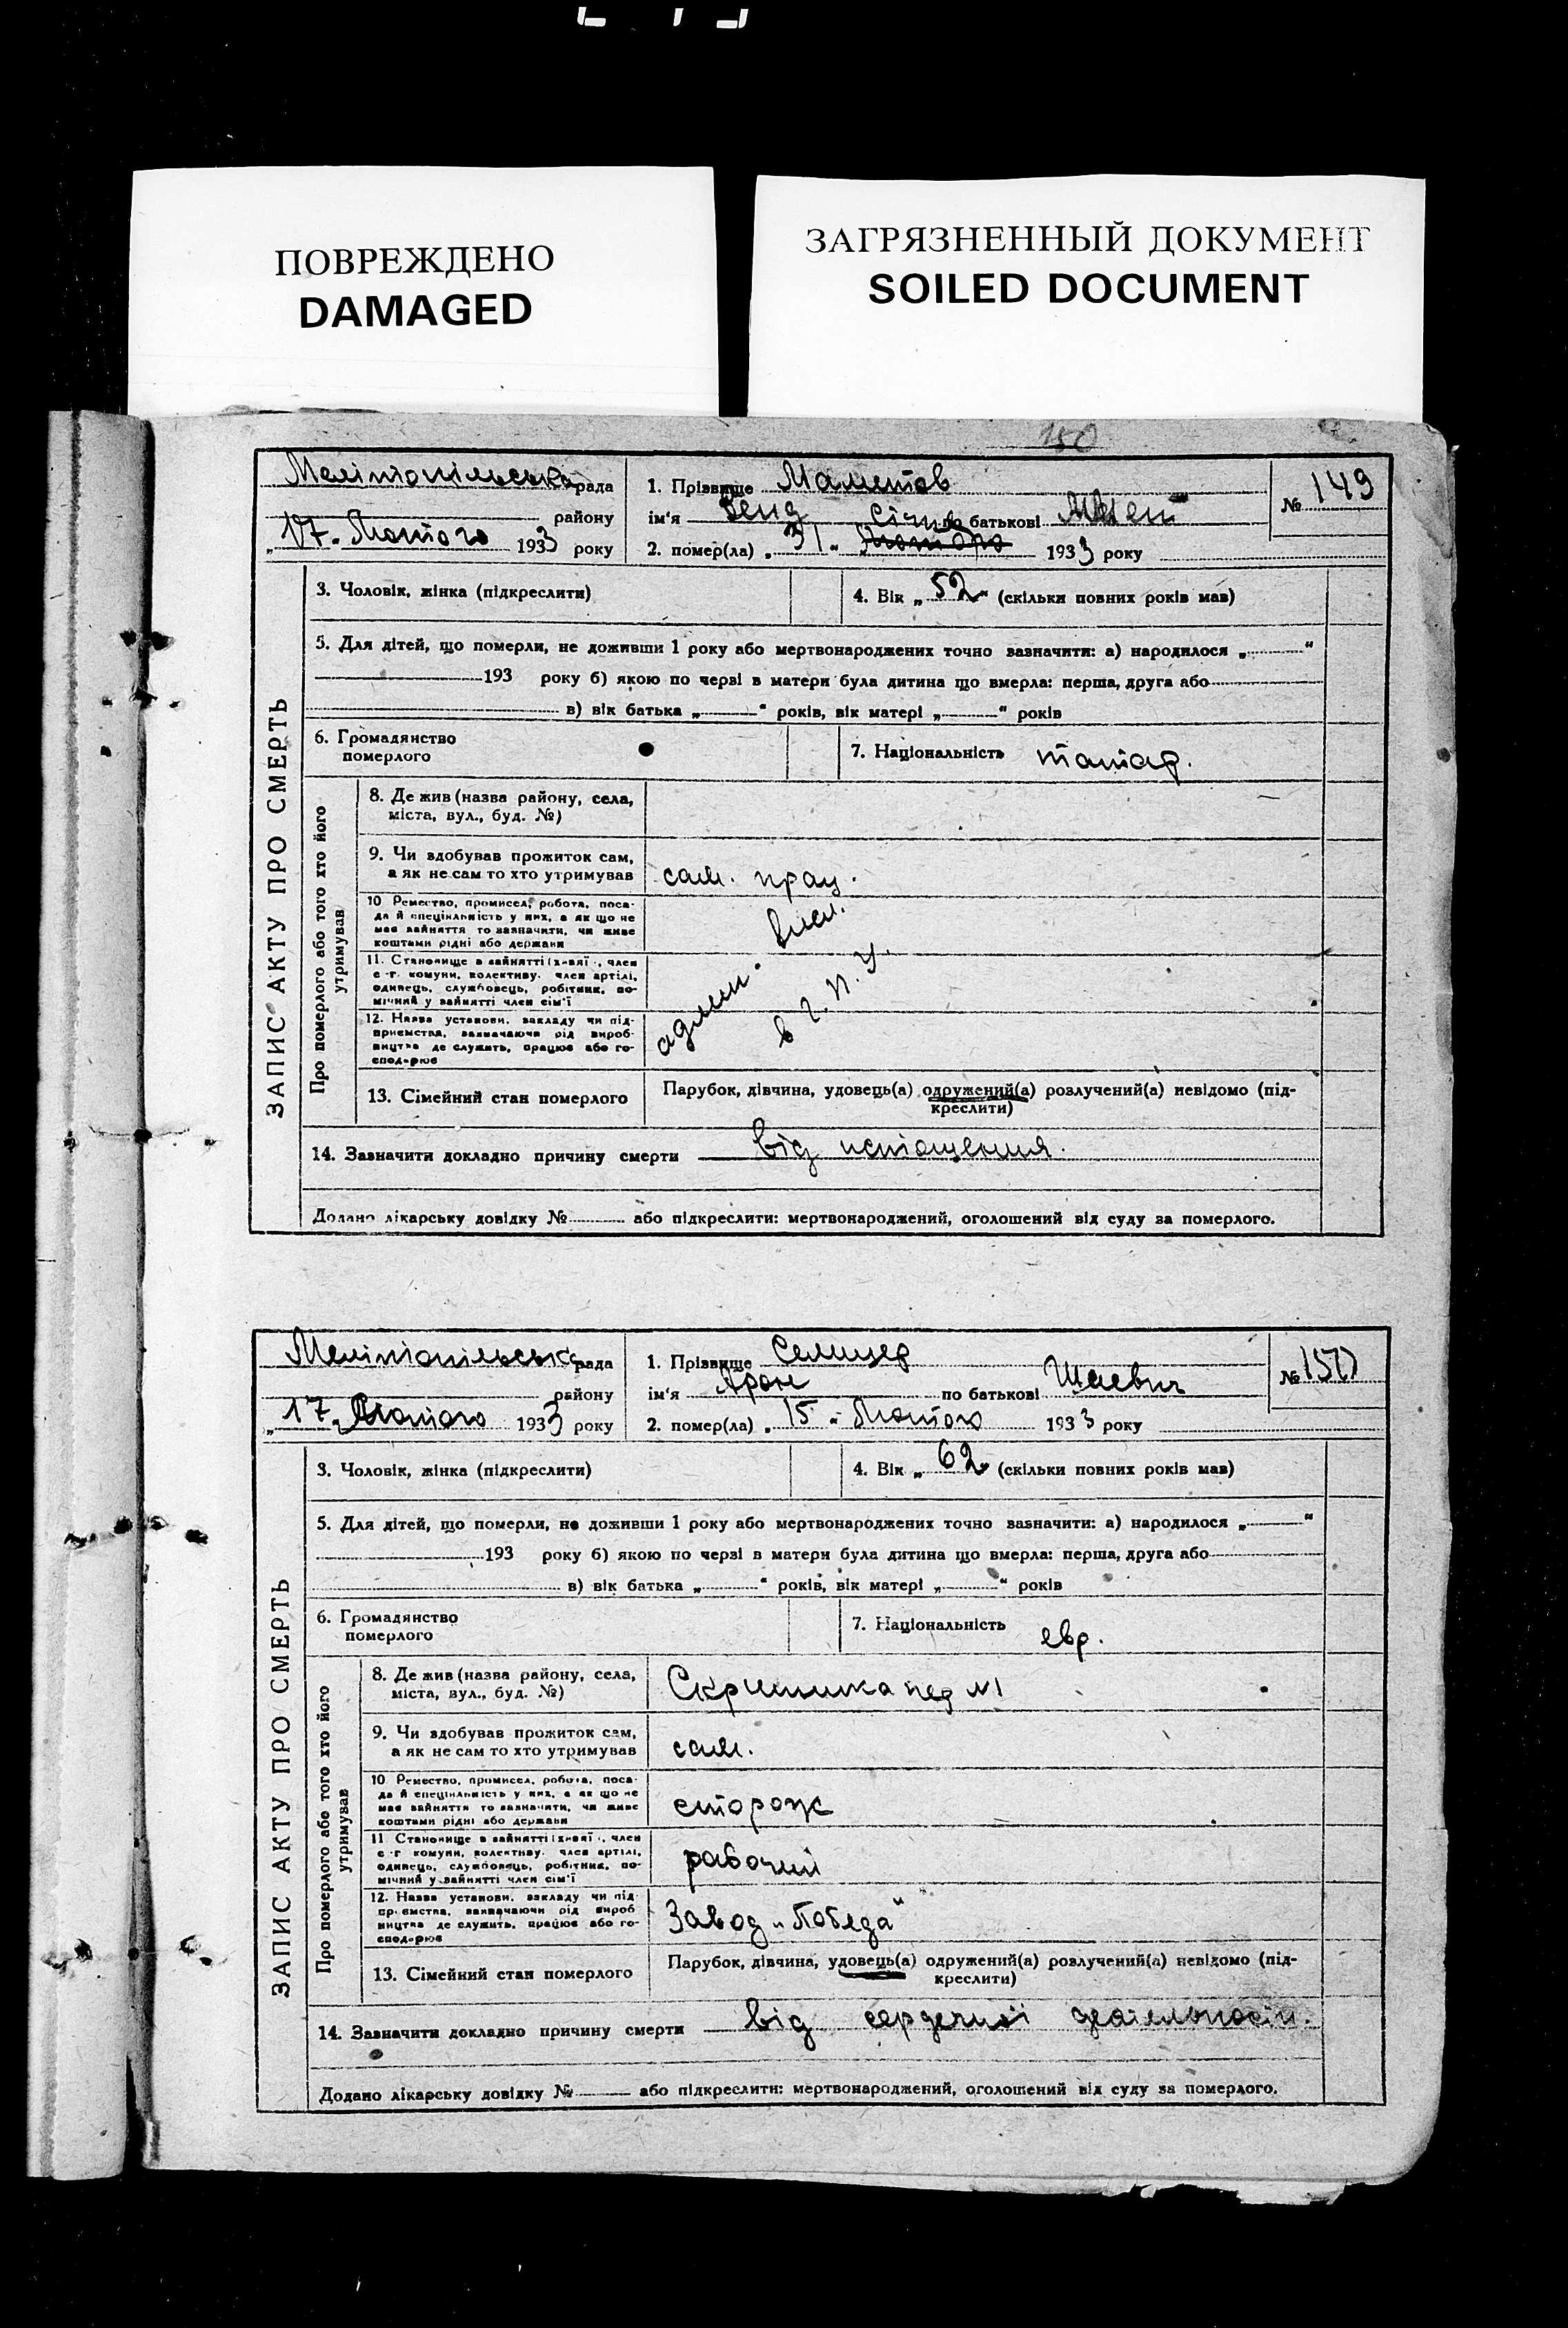 ПОВРЕЖДЕНО
DAMAGED
ЗАГРЯЗНЕННЫЙ ДОКУМЕНТ
SOILED DOCUMENT
150
ЗАПИС АКТУ ПРО СМЕРТЬ
Мелітопільська рада
району
„17" Лютого 1933 року
1. Прізвище Маметов
ім'я по батькові
2. помер(ла) „31" Січня Лютого 1933 року
№ 149
3. Чоловік, жінка (підкреслити)
4. Вік „52" (скільки повних років мав)
5. Для дітей, що померли, не доживши 1 року або мертвонароджених точно зазначити: а) народилося „ "
193 року б) якою по черзі в матери була дитина що вмерла: перша, друга або
в) вік батька „ " років, вік матері „ " років
6. Громадянство
померлого
7. Національність татар.
Про померлого або того хто його
утримував
8. Де жив (назва району, села,
міста, вул., буд. №)
9. Чи здобував прожиток сам,
а як не сам то хто утримував
сам. прац.
10 Ремество, промисел, робота, поса-
да й спеціяльність у них, а як що не
має зайняття то зазначити, чи живе
коштами рідні або держави
11. Становище в зайнятті (хазяї, член
с-г. комуни, колективу, член артілі,
одинець, службовець, робітник, по-
мічний у зайнятті член сім'ї
12. Назва установи, закладу чи під-
приємства, зазначаючи рід вироб-
ництва де служить, працює або го-
сподарює
админ. высл.
в Г.П.У.
13. Сімейний стан померлого
Парубок, дівчина, удовець(а) одружений(а) розлучений(а) невідомо (під-
креслити)
14. Зазначити докладно причину смерти від истощения.
Додано лікарську довідку № або підкреслити: мертвонароджений, оголошений від суду за померлого.
ЗАПИС АКТУ ПРО СМЕРТЬ
Мелітопільська рада
району
„17" Лютого 1933 року
1. Прізвище Селицер
ім'я Арон по батькові Шаевич
2. помер(ла) „15" Лютого 1933 року
№ 150
3. Чоловік, жінка (підкреслити)
4. Вік „62" (скільки повних років мав)
5. Для дітей, що померли, не доживши 1 року або мертвонароджених точно зазначити: а) народилося „ "
193 року б) якою по черзі в матери була дитина що вмерла: перша, друга або
в) вік батька „ " років, вік матері „ " років
6. Громадянство
померлого
7. Національність евр.
Про померлого або того хто його
утримував
8. Де жив (назва району, села,
міста, вул., буд. №)
№1
9. Чи здобував прожиток сам,
а як не сам то хто утримував
сам.
10 Ремество, промисел, робота, поса-
да й спеціяльність у них, а як що не
має зайняття то зазначити, чи живе
коштами рідні або держави
сторож
11 Становище в зайнятті (хазяї, член
с-г. комуни, колективу, член артілі,
одинець, службовець, робітник, по-
мічний у зайнятті член сім'ї
рабочий
12. Назва установи, закладу чи під-
приємства, зазначаючи рід вироб
ництва де служить, працює або го-
сподарює
Завод „Победа"
13. Сімейний стан померлого
Парубок, дівчина, удовець(а) одружений(а) розлучений(а) невідомо (під-
креслити)
14. Зазначити докладно причину смерти від сердечної
Додано лікарську довідку № або підкреслити: мертвонароджений, оголошений від суду за померлого.